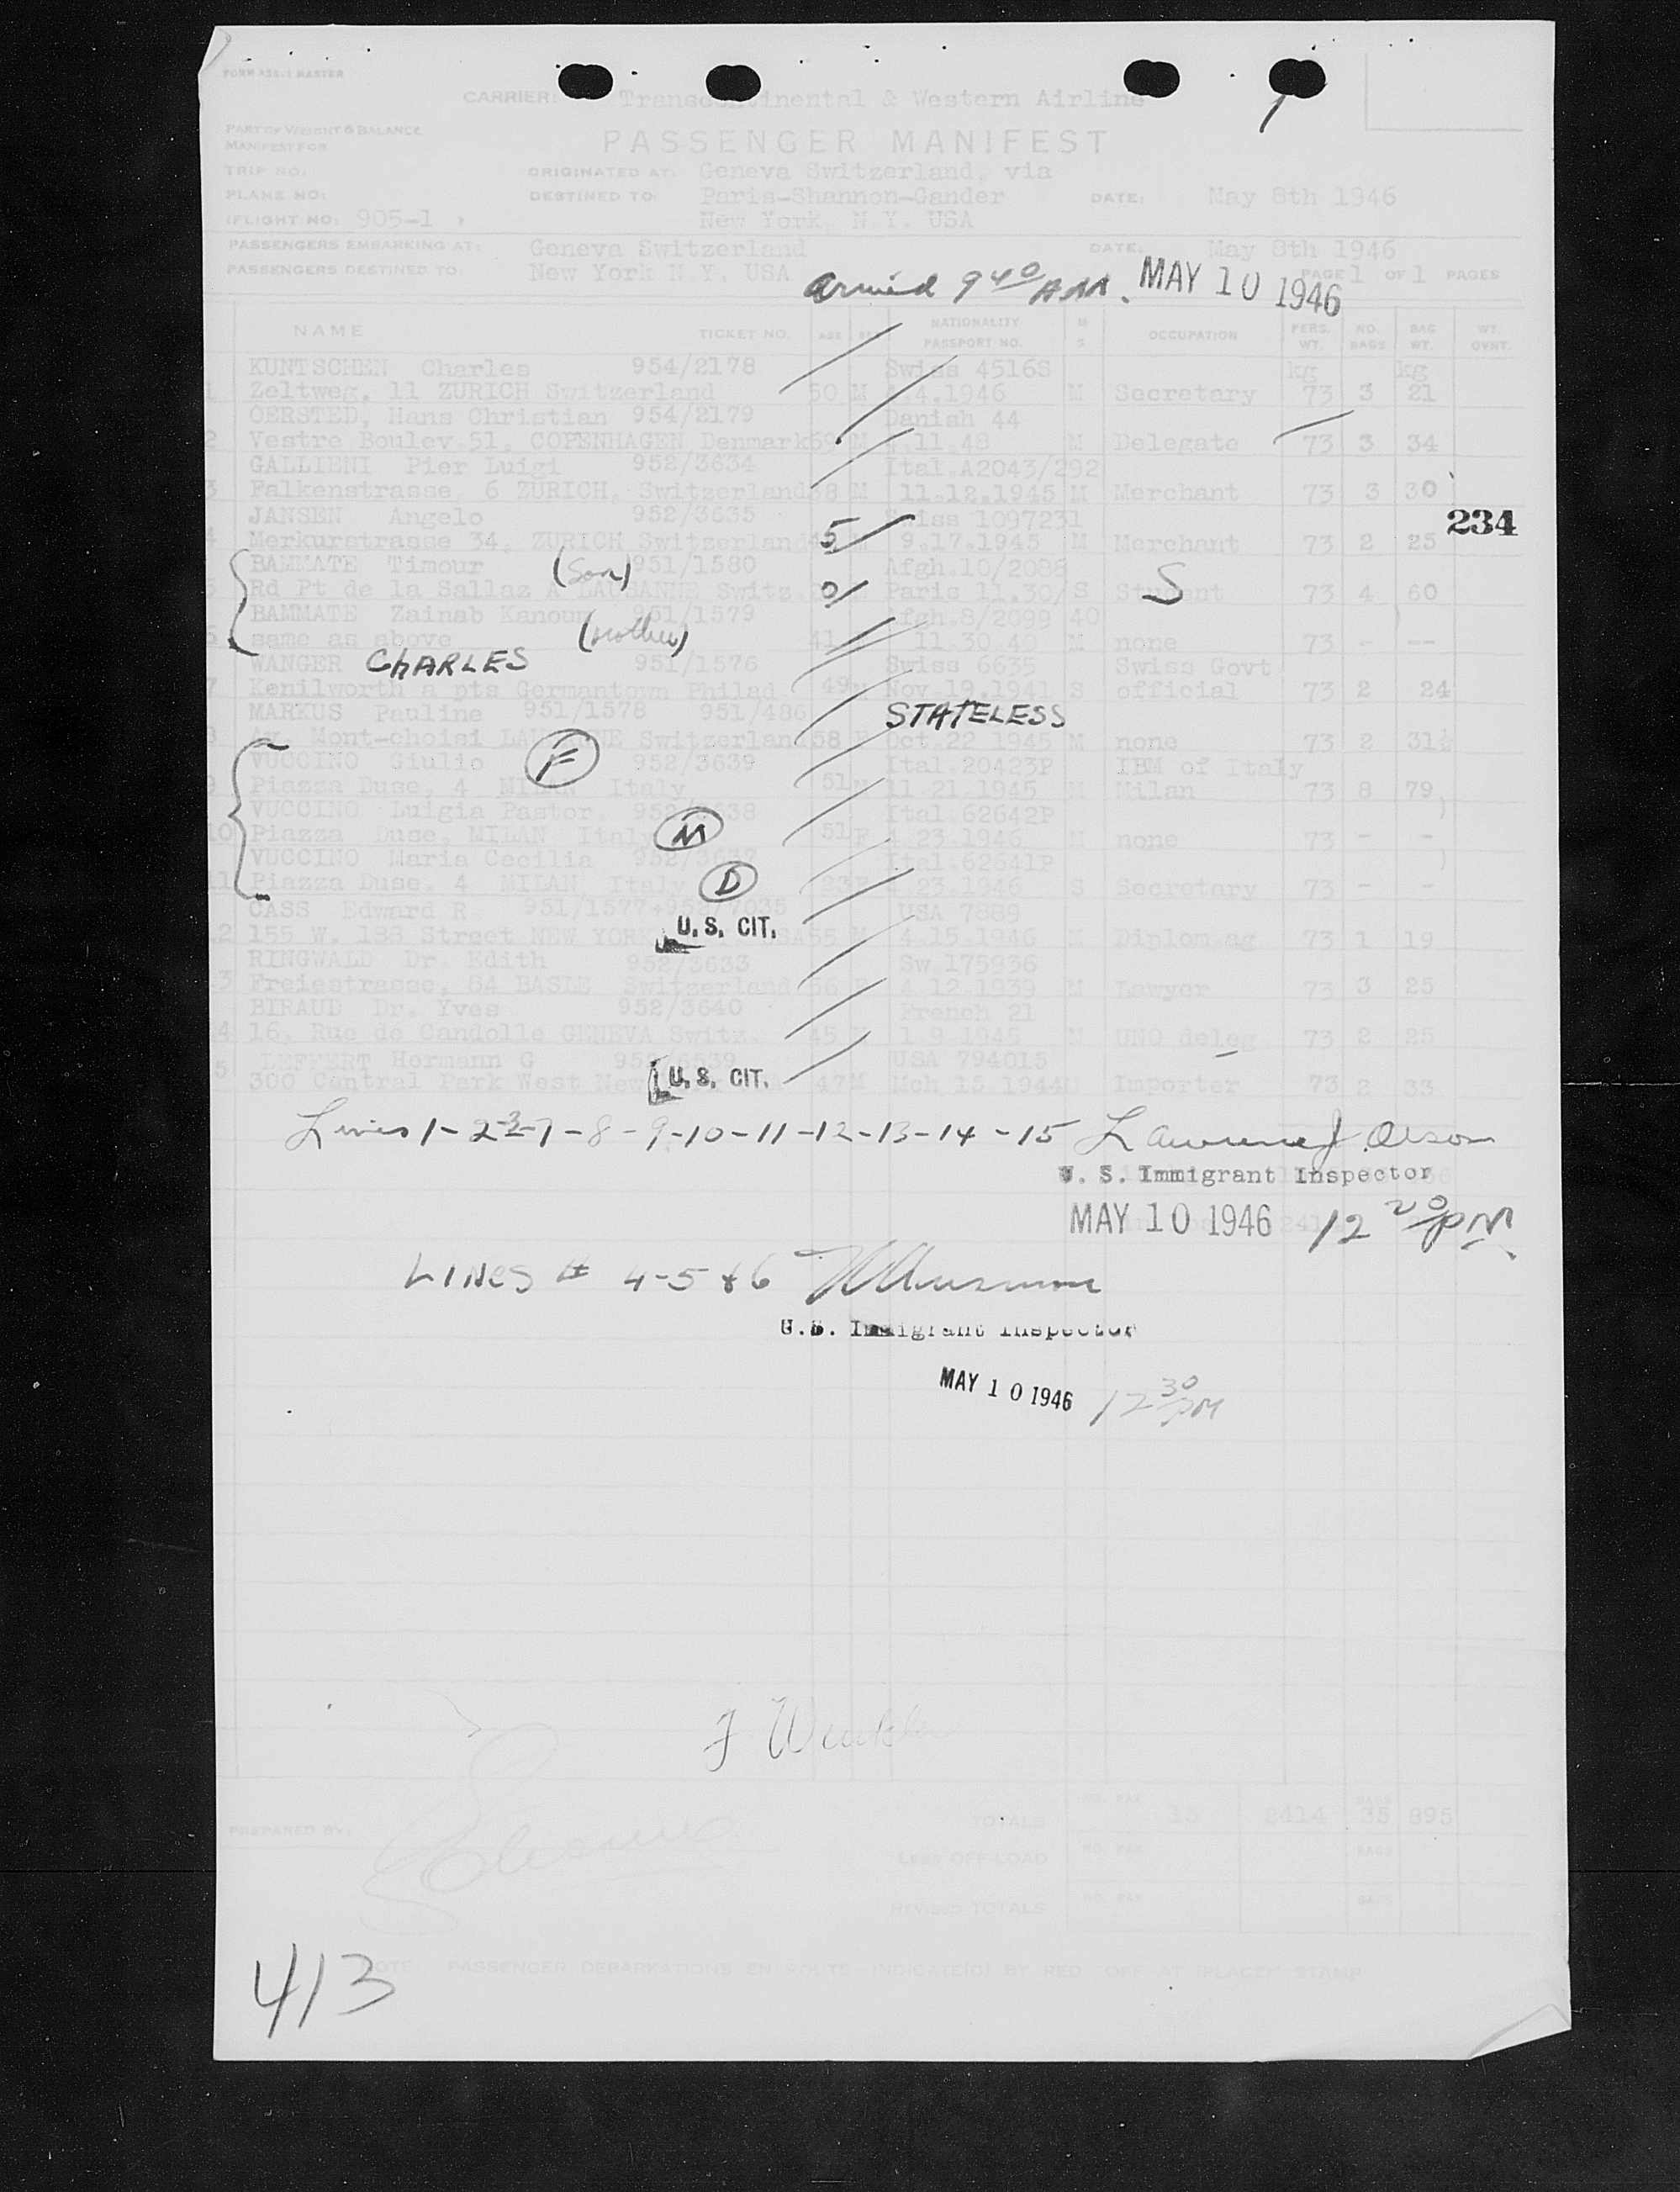 CARRIER: Transcontinental & Western Airline
PART OF WEIGHT & BALANCE
MANIFEST FOR
PASSENGER MANIFEST
TRIP NO: ORIGINATED AT: Geneva Switzerland, via
PLANE NO: DESTINED TO: Paris-Shannon-Gander DATE: May 8th 1946
(FLIGHT NO: 905-1 ) New York, N.Y. USA
PASSENGERS EMBARKING AT: Geneva Switzerland DATE: May 8th 1946
PASSENGERS DESTINED TO: New York N.Y. USA PAGE 1 OF 1 PAGES
arrived 9 40 AM. MAY 10 1946
NAME TICKET NO. AGE SEX NATIONALITY PASSPORT NO. M S OCCUPATION PERS. WT. NO. BAGS BAG WT. WT. OVHT.
KUNTSCHEN Charles 954/2178 Swiss 4516S kg kg
1 Zeltweg, 11 ZURICH Switzerland 50 M 4.1946 M Secretary 73 3 21
OERSTED, Hans Christian 954/2179 Danish 44
2 Vestre Boulev 51, COPENHAGEN Denmark M 11.48 M Delegate 73 3 34
GALLIENI Pier Luigi 952/3634 Ital.A2043/292
3 Falkenstrasse, 6 ZURICH, Switzerland 38 M 11.12.1945 M Merchant 73 3 30
234
JANSEN Angelo 952/3635 Swiss 1097231
4 Merkurstrasse 34, ZURICH Switzerland 5 9.17.1945 M Merchant 73 2 25
BAMMATE Timour (Son) 951/1580 Afgh.10/2088
5 Rd Pt de la Sallaz A LAUSANNE Switz. 0 Paris 11.30/ S Student S 73 4 60
BAMMATE Zainab Kanoum 951/1579 Afgh.8/2099 40
6 same as above (mother) 41 11.30.45 M none 73 - --
WANGER CHARLES 951/1576 Swiss 6635 Swiss Govt
7 Kenilworth a pts Germantown Philad. 49 Nov.19.1941 S official 73 2 24
MARKUS Pauline 951/1578 951/486 STATELESS
8 Av. Mont-choisi LAUSANNE Switzerland 58 F Oct.22 1945 M none 73 2 31½
VUCCINO Giulio F 952/3639 Ital.20423P IBM of Italy
9 Piazza Duse, 4 MILAN Italy 51 M 11 21.1945 M Milan 73 8 79
VUCCINO Luigia Pastor. 952/3638 Ital.62642P
10 Piazza Duse, MILAN Italy M 51 F 4 23.1946 M none 73 - -
VUCCINO Maria Cecilia Ital.62641P
11 Piazza Duse, 4 MILAN Italy D 23 F 23.1946 S Secretary 73 - -
CASS Edward R 951/1577+952/7035 USA 7889
12 155 W. 188 Street NEW YORK U.S. CIT. USA 55 M 4.15.1946 M Diplom.ag 73 1 19
RINGWALD Dr. Edith 952/3633 Sw 175936
13 Freiestrasse, 64 BASLE Switzerland 56 F 4 12 1939 M Lawyer 73 3 25
BIRAUD Dr. Yves 952/3640 French 21
14 16, Rue de Candolle GENEVA Switz. 45 M 1 9 1945 M UNO deleg 73 2 25
15 LEFFERT Hermann G USA 794015
300 Central Park West New U.S. CIT. 47 M Mch 15 1944 Importer 73 2 33
Lines 1-2-3-7-8-9-10-11-12-13-14-15 Lawrence J. Olson
U. S. Immigrant Inspector
MAY 10 1946 12 20 PM
LINES # 4-5 & 6
U.S. Immigrant Inspector
MAY 10 1946 12 30 PM
PREPARED BY: TOTALS 15 2414 35 895
LESS OFF-LOAD
REVISED TOTALS
413 NOTE PASSENGER DEBARKATIONS EN ROUTE INDICATE(D) BY RED OFF AT (PLACE) STAMP